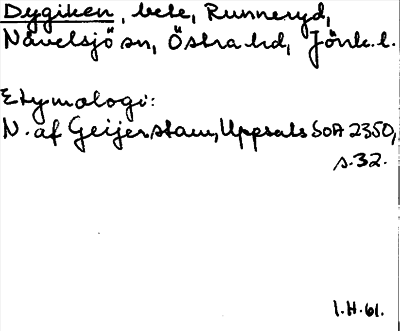 Dygiken, bete, Runneryd,
Nävelsjö sn, Östra hd, Jönk. l.
Etymologi:
N. af Geijerstam, Uppsats SOA 2350,
s. 32.
I.H. 61.